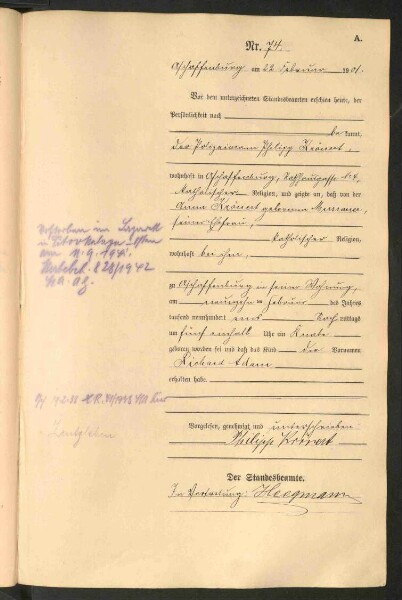 A.
Nr. 74.
Aschaffenburg am 22. Februar 1901.
Vor dem unterzeichneten Standesbeamten erschien heute, der
Persönlichkeit nach
bekannt,
der Polizeimann Philipp Krönert,
wohnhaft in Aschaffenburg,
katholischer Religion, und zeigte an, daß von der
Anna Krönert geborenen
seiner Ehefrau,
katholischer Religion,
wohnhaft bei ihm,
zu Aschaffenburg in seiner Wohnung,
am neunzehnten Februar des Jahres
tausend neunhundert eins Nachmittags
um fünf einhalb Uhr ein Knabe
geboren worden sei und daß das Kind die Vornamen
Richard Adam
erhalten habe.
Vorgelesen, genehmigt und unterschrieben
Philipp Krönert
Der Standesbeamte.
In Vertretung: Heegmann
Verstorben im Lazarett
in
am 11.9.1941.
828/1942